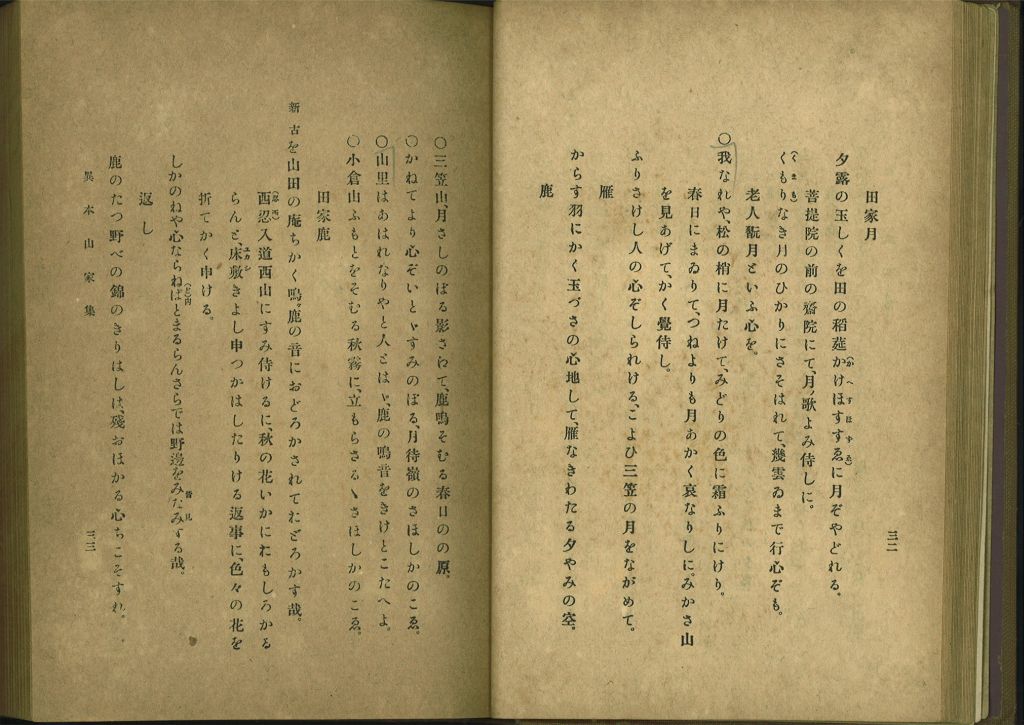 田家月
夕露の玉しくを田の稻莚かけほすすゑに月ぞやどれる。
(かへすほすゑ)
菩提院の前の齋院にて、月歌よみ侍しに。
(くまも)
くもりなき月のひかりにさそはれて、幾雲ゐまで行心ぞも。
老人翫月といふ心を。
〇我なれや、松の梢に月たけて、みどりの色に霜ふりにけり。
春日にまゐりて、つねよりも月あかく哀なりしに。みかさ山
を見あげて、かく覺侍し。
ふりさけし人の心ぞしられける、こよひ三笠の月をながめて。
雁
からす羽にかく玉づさの心地して、雁なきわたる夕やみの空。
鹿
三二
〇三笠山、月さしのぼる影さえて、鹿鳴そむる春日のの原、
〇かねてより心ぞいとゞすみのぼる、月待嶺のさほしかのこゑ。
〇山里はあはれなりやと人とはゞ、鹿の鳴音をきけとこたへよ。
〇小倉山ふもとをそむる秋霧に、立もらさるゝさほしかのこゑ。
田家鹿
新古を山田の庵ちかく鳴。鹿の音におどろかされておどろかす哉。
西忍入道西山にすみ侍けるに、秋の花いかにおもしろかる
らんと、床敷きよし申つかはしたりける返事に、色々の花を
ユカシ
折てかく申ける。
しかのねや心ならねばとまるらんさらでは野邊をみなみする哉。
(ど)内
皆見
返し
鹿のたつ野べの錦のきりはしは、殘おほかる心ちこそすれ。
異本山家集
三三